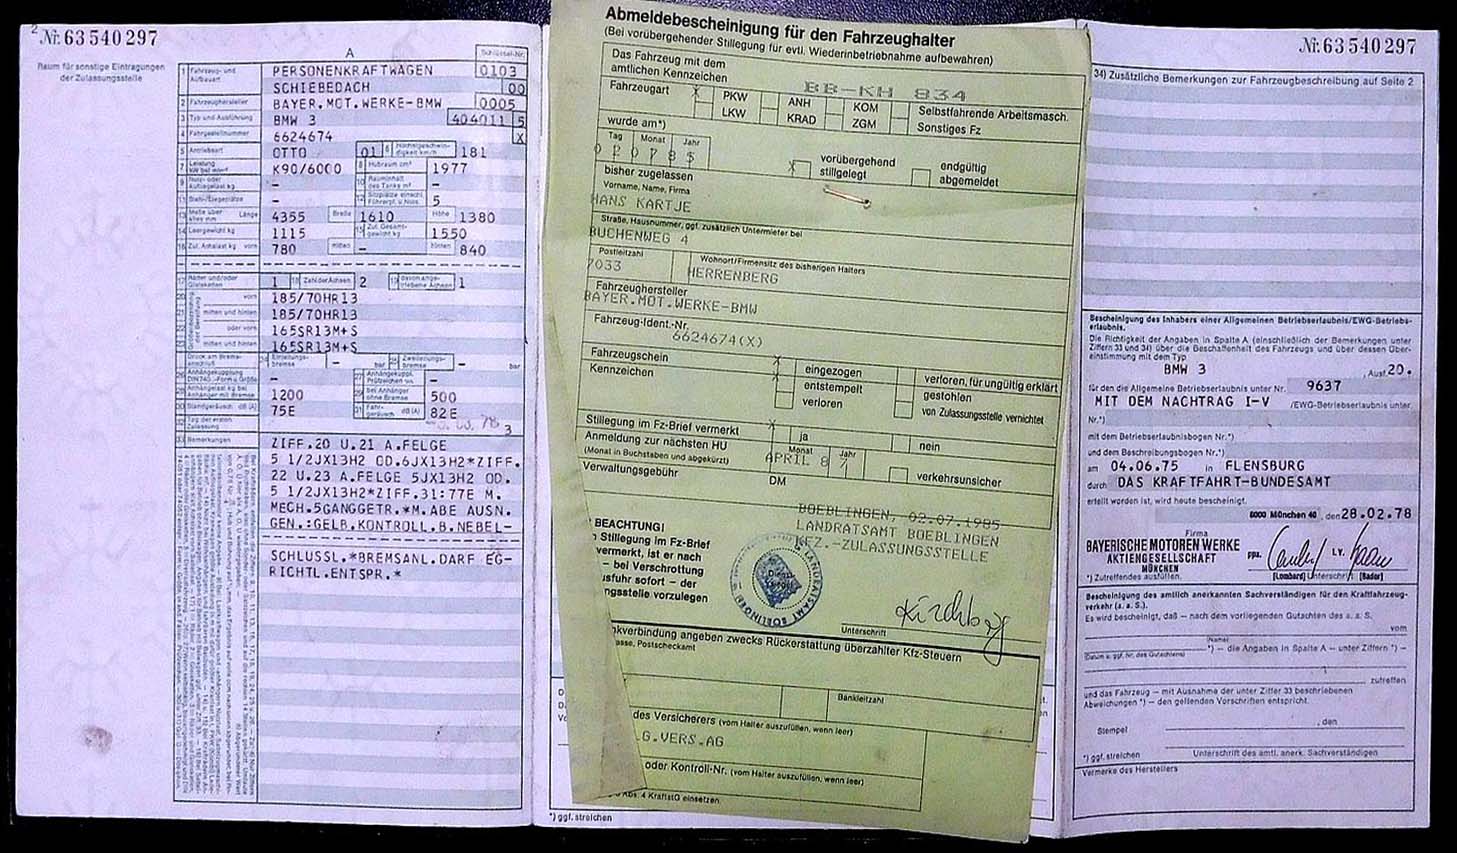 2
Nr. 63540297
Raum für sonstige Eintragungen
der Zulassungsstelle
A
Schlüssel-Nr.
1 Fahrzeug- und Aufbauart PERSONENKRAFTWAGEN 0103
SCHIEBEDACH 00
2 Fahrzeughersteller BAYER.MOT.WERKE-BMW 0005
3 Typ und Ausführung BMW 3 404011 5
4 Fahrgestellnummer 6624674 X
5 Antriebsart OTTO 01 6 Höchstgeschwindigkeit km/h 181
7 Leistung kW bei min K90/6000 8 Hubraum cm³ 1977
9 Nutz- oder Aufliegelast kg – 10 Rauminhalt des Tanks m³ –
11 Steh-/Liegeplätze – 12 Sitzplätze einschl. Führerpl. u. Nots. 5
13 Maße über alles mm Länge 4355 Breite 1610 Höhe 1380
14 Leergewicht kg 1115 15 Zul. Gesamtgewicht kg 1550
16 Zul. Achslast kg vorn 780 mitten – hinten 840
17 Räder und/oder Gleisketten 1 18 Zahl der Achsen 2 19 davon angetriebene Achsen 1
20 vorn 185/70HR13
21 mitten und hinten 185/70HR13
22 oder vorn 165SR13M+S
23 mitten und hinten 165SR13M+S
Druck am Bremsanschluß 24 Einleitungsbremse – bar 25 Zweileitungsbremse – bar
26 Anhängekupplung DIN 740.. Form u. Größe – 27 Anhängekuppl. Prüfzeichen –
28 Anhängelast kg bei Anhänger mit Bremse 1200 29 bei Anhänger ohne Bremse 500
30 Standgeräusch dB (A) 75E 31 Fahrgeräusch dB (A) 82E
32 Tag der ersten Zulassung 03.78 3
33 Bemerkungen ZIFF.20 U.21 A.FELGE
5 1/2JX13H2 OD.6JX13H2*ZIFF.
22 U.23 A.FELGE 5JX13H2 OD.
5 1/2JX13H2*ZIFF.31:77E M.
MECH.5GANGGETR.*M.ABE AUSN.
GEN.:GELB.KONTROLL.B.NEBEL-
SCHLUSSL.*BREMSANL.DARF EG-
RICHTL.ENTSPR.*
Abmeldebescheinigung für den Fahrzeughalter
(Bei vorübergehender Stillegung für evtl. Wiederinbetriebnahme aufbewahren)
Das Fahrzeug mit dem
amtlichen Kennzeichen BB-KH 834
Fahrzeugart x PKW ANH KOM Selbstfahrende Arbeitsmasch.
LKW KRAD ZGM Sonstiges Fz
wurde am*)
Tag Monat Jahr
020785 x vorübergehend stillgelegt endgültig abgemeldet
bisher zugelassen
Vorname, Name, Firma
HANS KARTJE
Straße, Hausnummer, ggf. zusätzlich Untermieter bei
BUCHENWEG 4
Postleitzahl Wohnort/Firmensitz des bisherigen Halters
7033 HERRENBERG
Fahrzeughersteller
BAYER.MOT.WERKE-BMW
Fahrzeug-Ident.-Nr.
6624674(X)
Fahrzeugschein x eingezogen verloren, für ungültig erklärt
Kennzeichen x entstempelt gestohlen
verloren von Zulassungsstelle vernichtet
Stillegung im Fz-Brief vermerkt x ja nein
Anmeldung zur nächsten HU
(Monat in Buchstaben und abgekürzt) Monat Jahr
APRIL 87 verkehrsunsicher
Verwaltungsgebühr DM
BOEBLINGEN, 02.07.1985
LANDRATSAMT BOEBLINGEN
KFZ.-ZULASSUNGSSTELLE
BEACHTUNG!
Stillegung im Fz-Brief
vermerkt, ist er nach
– bei Verschrottung
usfuhr sofort – der
ngsstelle vorzulegen
LANDRATSAMT BÖBLINGEN
Unterschrift
nkverbindung angeben zwecks Rückerstattung überzahlter Kfz-Steuern
asse, Postscheckamt
Bankleitzahl
des Versicherers (vom Halter auszufüllen, wenn leer)
.G.VERS.AG
oder Kontroll-Nr. (vom Halter auszufüllen, wenn leer)
Abs. 4 KraftStG einsetzen
*) ggf. streichen
Nr. 63540297
34) Zusätzliche Bemerkungen zur Fahrzeugbeschreibung auf Seite 2
Bescheinigung des Inhabers einer Allgemeinen Betriebserlaubnis/EWG-Betriebs-
erlaubnis.
Die Richtigkeit der Angaben in Spalte A (einschließlich der Bemerkungen unter
Ziffern 33 und 34) über die Beschaffenheit des Fahrzeugs und über dessen Über-
einstimmung mit dem Typ
BMW 3 , Ausf. 20.
für den die Allgemeine Betriebserlaubnis unter Nr. 9637
MIT DEM NACHTRAG I-V /EWG-Betriebserlaubnis unter
Nr.*)
mit dem Betriebserlaubnisbogen Nr.*)
und dem Beschreibungsbogen Nr.*)
am 04.06.75 in FLENSBURG
durch DAS KRAFTFAHRT-BUNDESAMT
erteilt worden ist, wird heute bescheinigt.
8000 München 40 , den 28.02.78
Firma
BAYERISCHE MOTOREN WERKE
AKTIENGESELLSCHAFT
MÜNCHEN
ppa. i.V.
*) Zutreffendes ausfüllen. (Lombard) Unterschrift (Bader)
Bescheinigung des amtlich anerkannten Sachverständigen für den Kraftfahrzeug-
verkehr (a. a. S.).
Es wird bescheinigt, daß – nach dem vorliegenden Gutachten des a. a. S.
vom
(Name)
*) – die Angaben in Spalte A – unter Ziffern *) –
(Datum u. ggf. Nr. des Gutachtens)
zutreffen
und das Fahrzeug – mit Ausnahme der unter Ziffer 33 beschriebenen
Abweichungen *) – den geltenden Vorschriften entspricht.
, den
Stempel
*) ggf. streichen Unterschrift des amtl. anerk. Sachverständigen
Vermerke des Herstellers